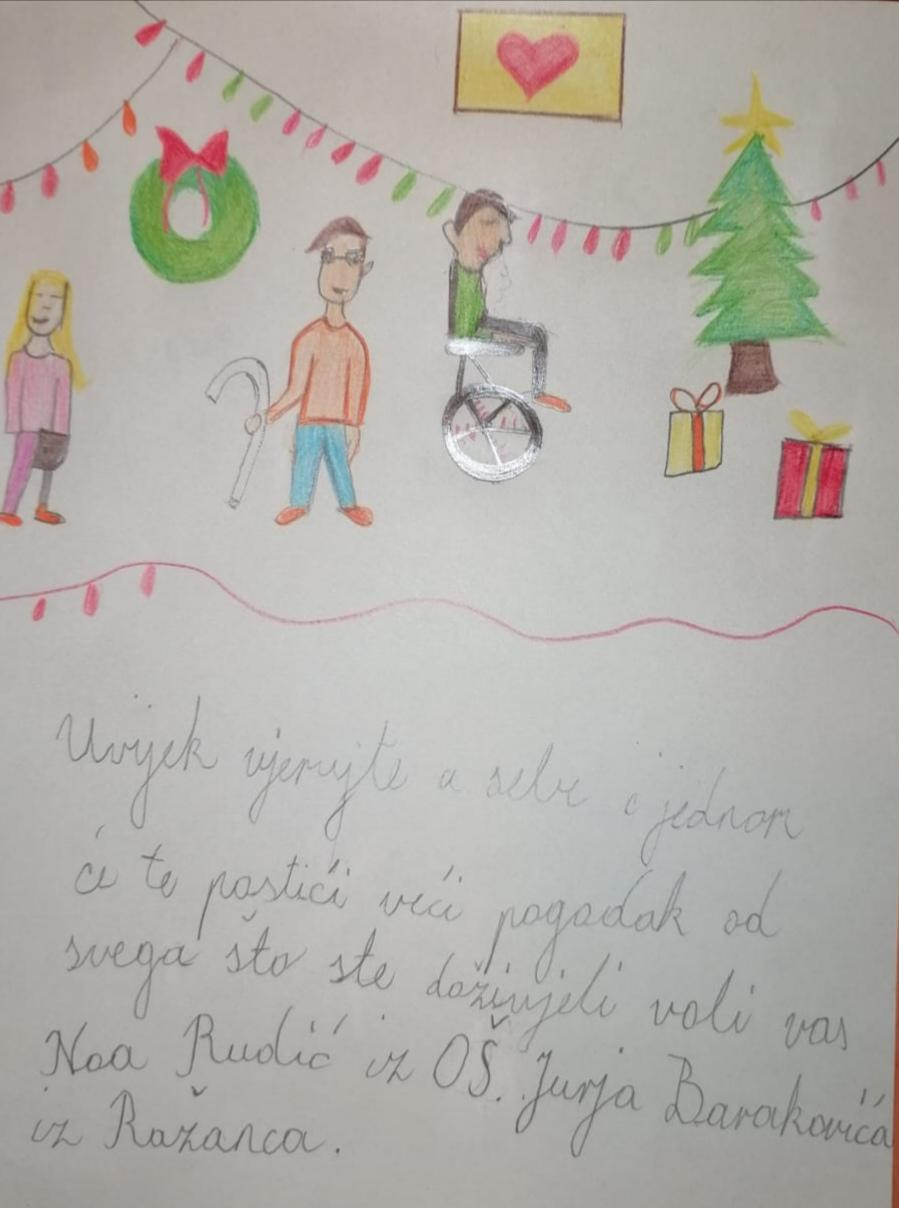 Uvijek vjerujte u sebe i jednom
će te postići veći pogodak od
svega što ste doživjeli voli vas
Noa Rudić iz OŠ. Jurja Barakovića
iz Ražanca.